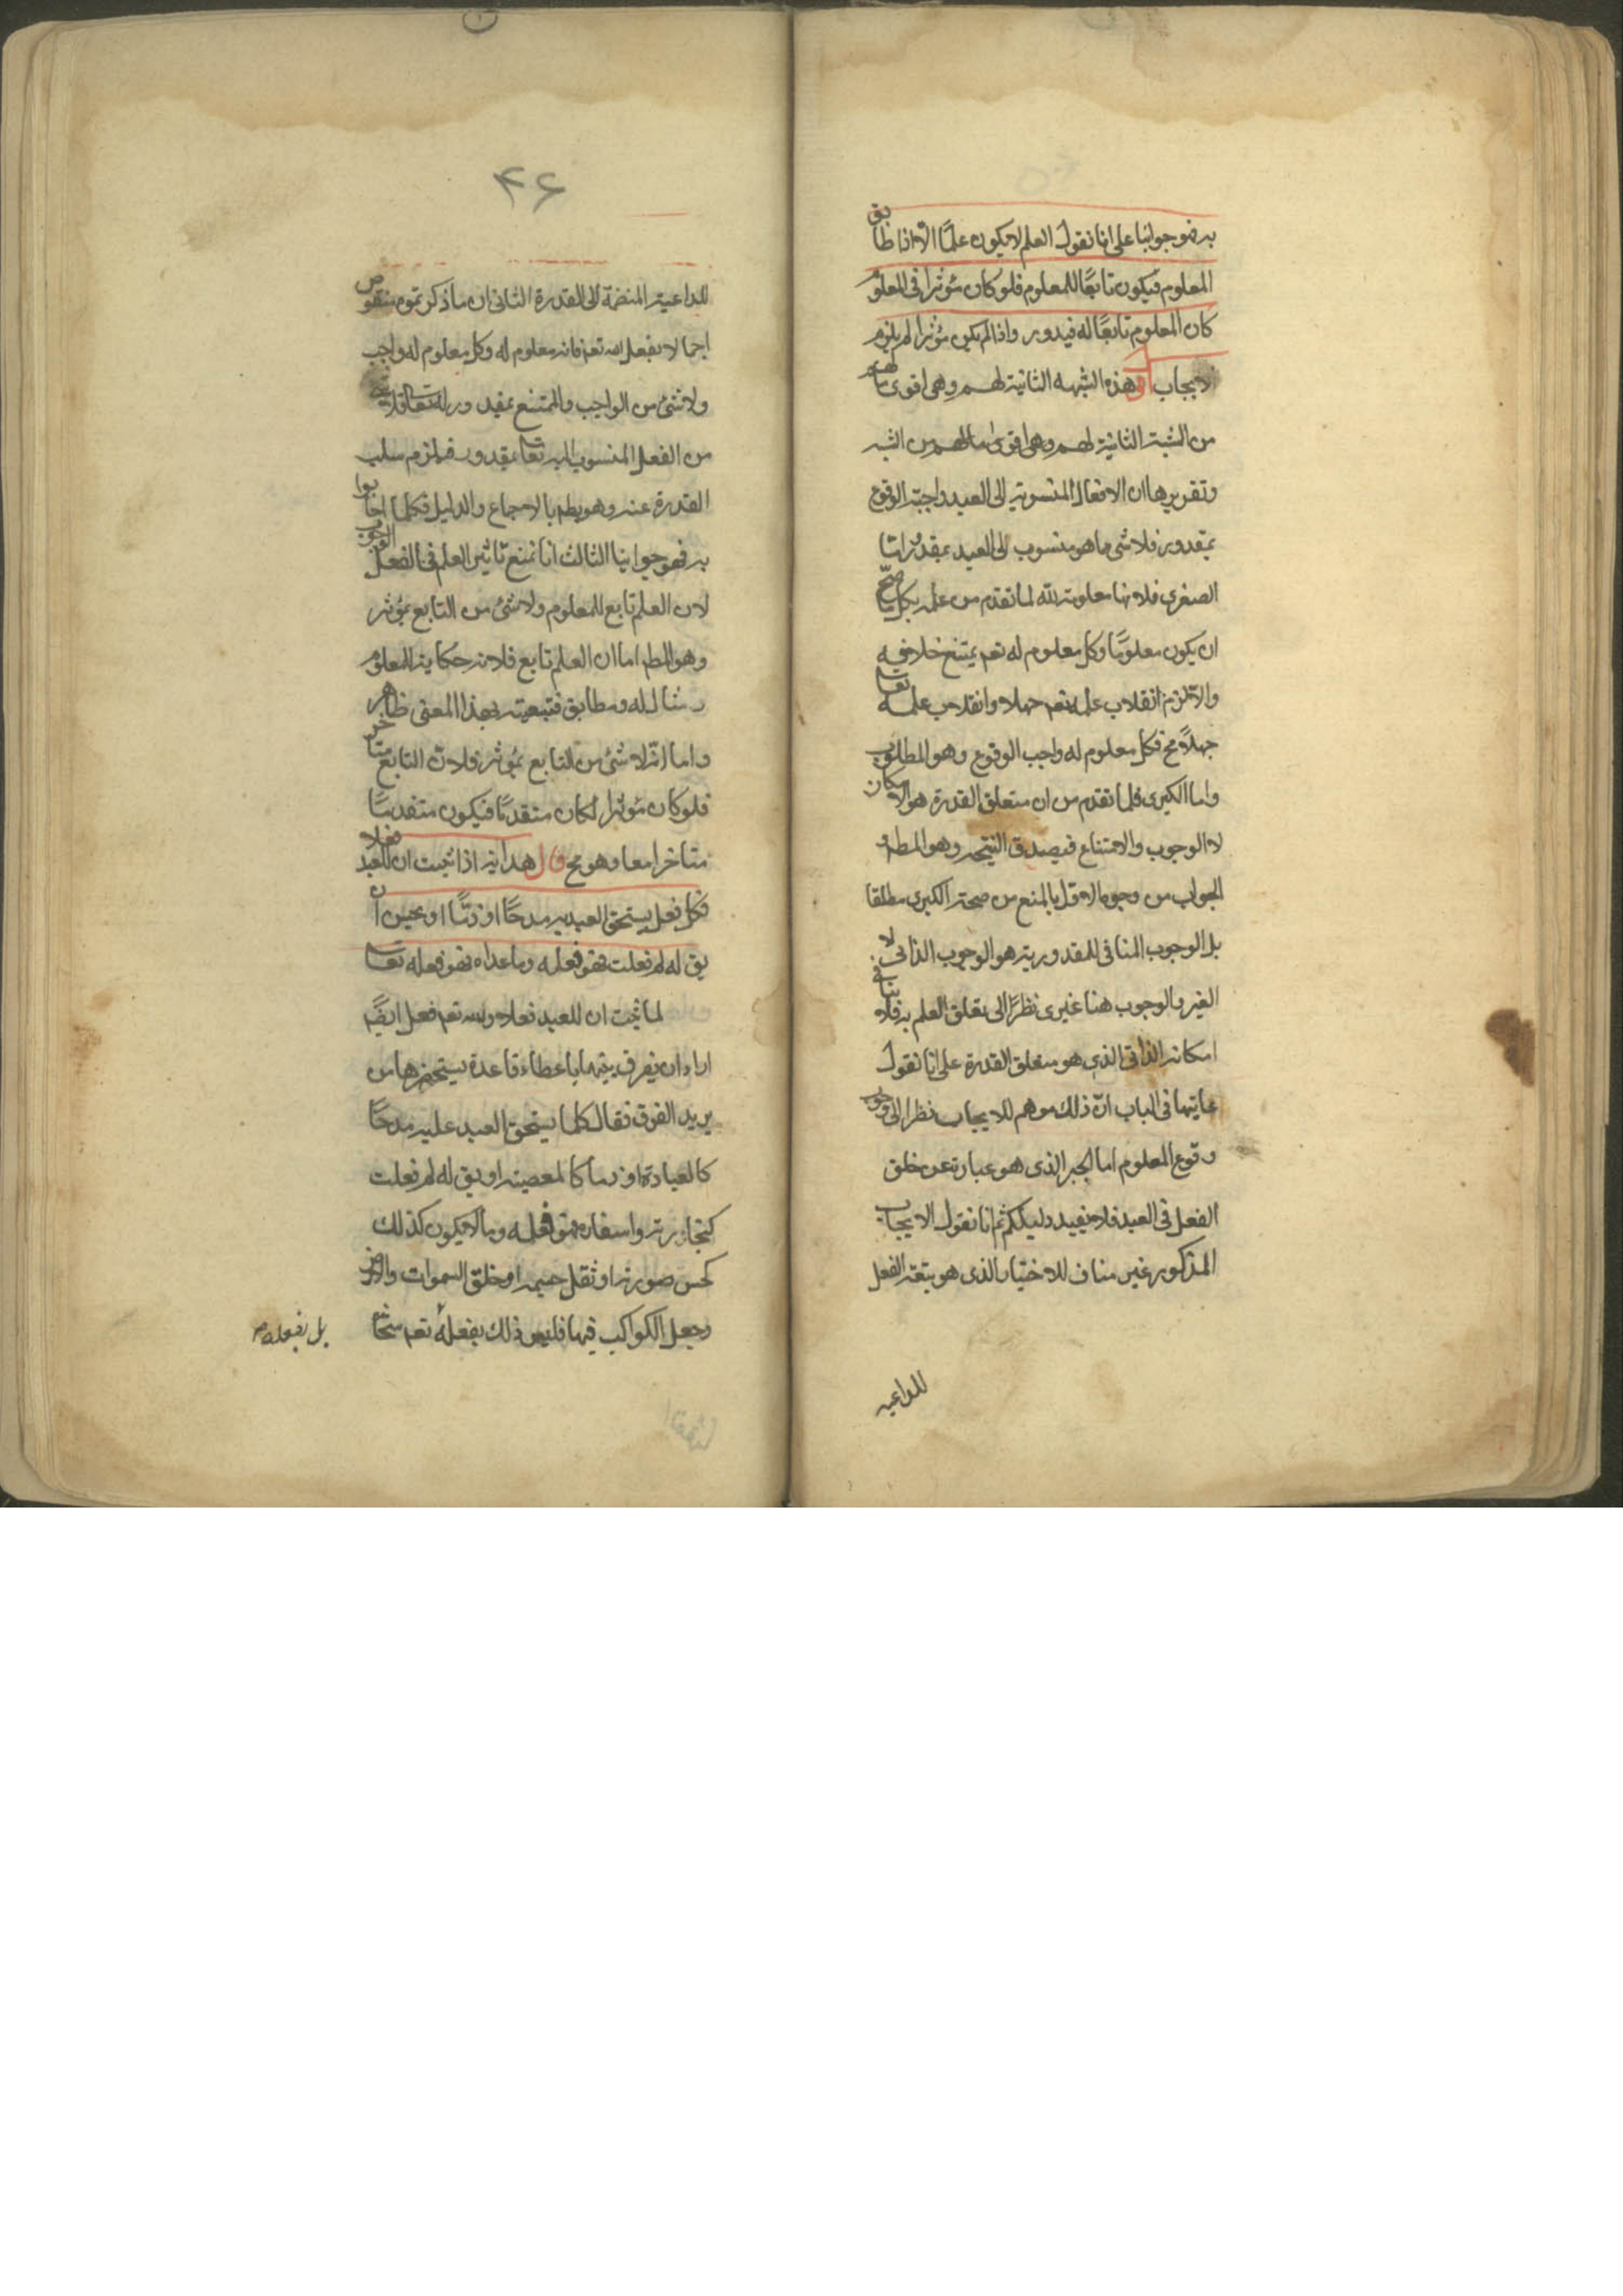 به فهو جوابنا على انا نقول العلم لا يكون علمًا الا اذا طابق
المعلوم فيكون تابعًا للمعلوم فلو كان مؤثرا فى المعلوم
كان المعلوم تابعًا له فيدور واذا لم يكن مؤثرا لم يلزم
الايجاب اقول هذه الشبهه الثانية لهم وهى اقوى ما لهم
من الشبه الثانية لهم وهى اقوى ما لهم من الشبه
وتقريرها ان الافعال المنسوبة الى العبد واجبة الوقوع
بمقدور فلا شى مما هو منسوب الى العبد بمقدور اما
الصغرى فلانها معلومة لله لما تقدم من علمه بكل ما صح
ان يكون معلومًا وكل معلوم له تعم يمتنع خلافه
والا لزم انقلاب علمه تعم جهلا وانقلاب علمه تعالى
جهلاً مح فكل معلوم له واجب الوقوع وهو المطلوب
واما الكبرى فلما تقدم من ان متعلق القدرة هو الامكان
لا الوجوب والامتناع فيصدق النتيجه وهو المطم
الجواب من وجوه الاول بالمنع من صحة الكبرى مطلقا
بل الوجوب المنافى للمقدورية هو الوجوب الذاتى لا
الغير والوجوب هنا غيرى نظرًا الى تعلق العلم به فلا ينافى
امكانه الذاتى الذى هو متعلق القدرة على انا نقول
غايتها فى الباب ان ذلك موهم للايجاب نظرا الى وجوب
وقوع المعلوم اما الجبر الذى هو عبارة عن خلق
الفعل فى العبد فلا يفيد دليلكم ثم انا نقول الايجاب
المذكور غير مناف للاختيار الذى هو بتعة الفعل
للداعيه
۴۶
للداعية المنضمة الى القدرة الثانى ان ما ذكرتموه منقوض
اجمالا بفعل الله تعم فانه معلوم له وكل معلوم له واجب
ولا شئ من الواجب والممتنع بمقدور له تعالى فلا شئ
من الفعل المنسوب اليه تعا بمقدور فيلزم سلب
القدرة عنه وهو بطم بالاجماع والدليل فكلما اجابوا
به فهو جوابنا الثالث انا نمنع تاثير العلم فى الفعل الوجوب
لان العلم تابع للمعلوم ولا شئ من التابع بمؤثر
وهو المطم اما ان العلم تابع فلانه حكاية المعلوم
ومثال له ومطابق فتبعيته بهذا المعنى ظاهر
واما انه لا شئ من التابع بمؤثر فلان التابع متاخر
فلو كان مؤثرا لكان متقدمًا فيكون متقدمًا
متاخرا معا وهو مح قال هداية اذا ثبت ان للعبد فعلا
فكل فعل يستحق العبد به مدحًا او ذمًا او يحسن ان
يق له لم فعلت فهو فعله وما عداه فهو فعله تعالى
لما ثبت ان للعبد فعلا ولله تعم فعل ايضًا
اراد ان يفرق بينهما باعطاء قاعدة يستحضرها من
يريد الفرق فقال كلما يستحق العبد عليه مدحًا
كالعبادة او ذما كالمعصية او يق له لم فعلت
كتجارته واسفاره فهو فعله وما لا يكون كذلك
كحسن صورته او ثقل جسمه او خلق السموات والارض
وجعل الكواكب فيها فليس ذلك بفعله تعم
بل بفعله م